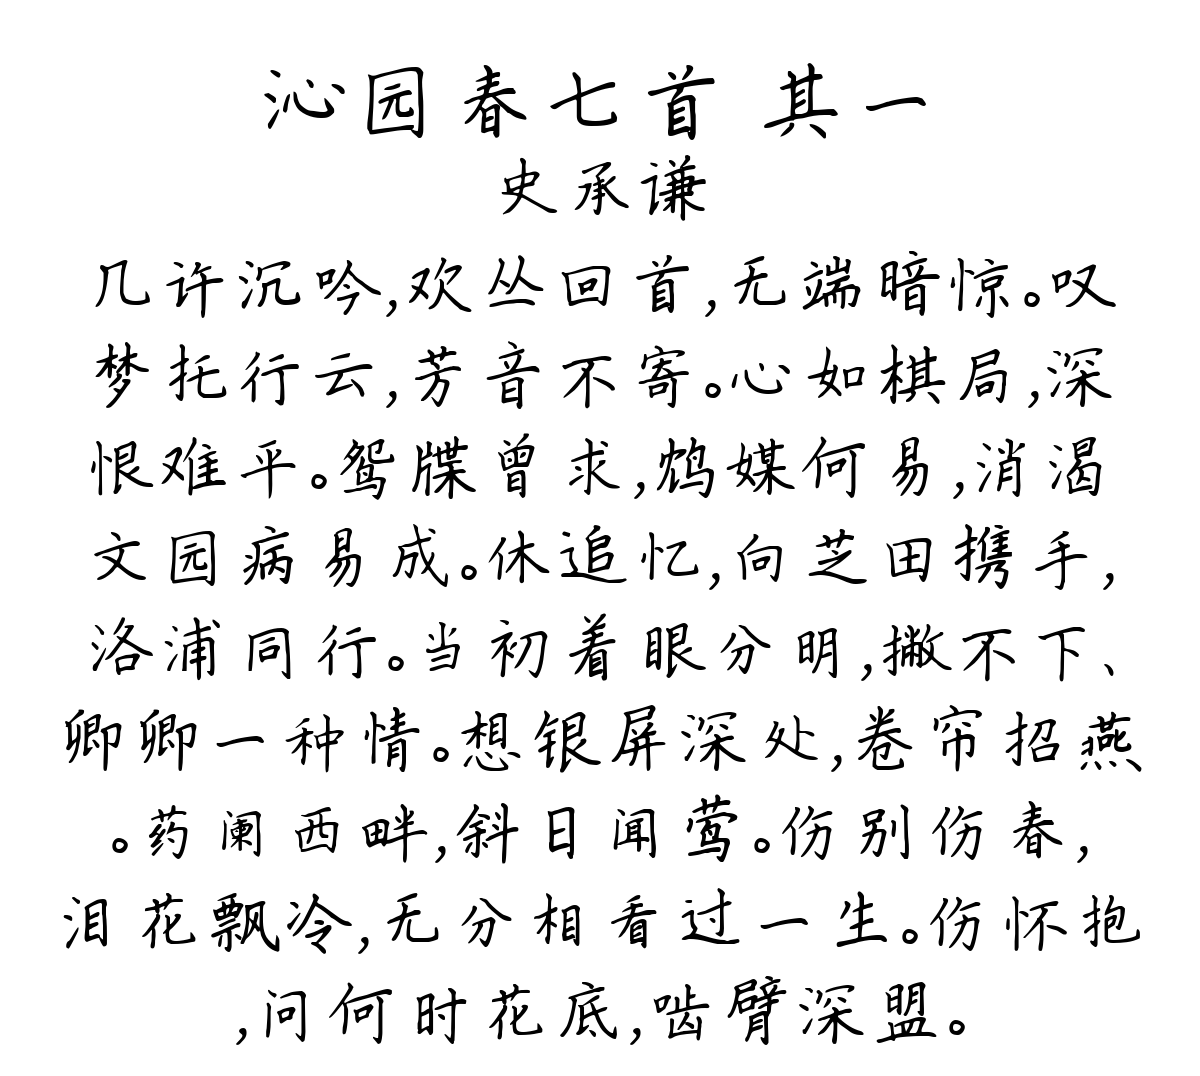 沁园春七首 其一
史承谦
几许沉吟,欢丛回首,无端暗惊。叹
梦托行云,芳音不寄。心如棋局,深
恨难平。鸳牒曾求,鸩媒何易,消渴
文园病易成。休追忆,向芝田携手,
洛浦同行。当初着眼分明,撇不下、
卿卿一种情。想银屏深处,卷帘招燕
。药阑西畔,斜日闻莺。伤别伤春,
泪花飘冷,无分相看过一生。伤怀抱
,问何时花底,啮臂深盟。